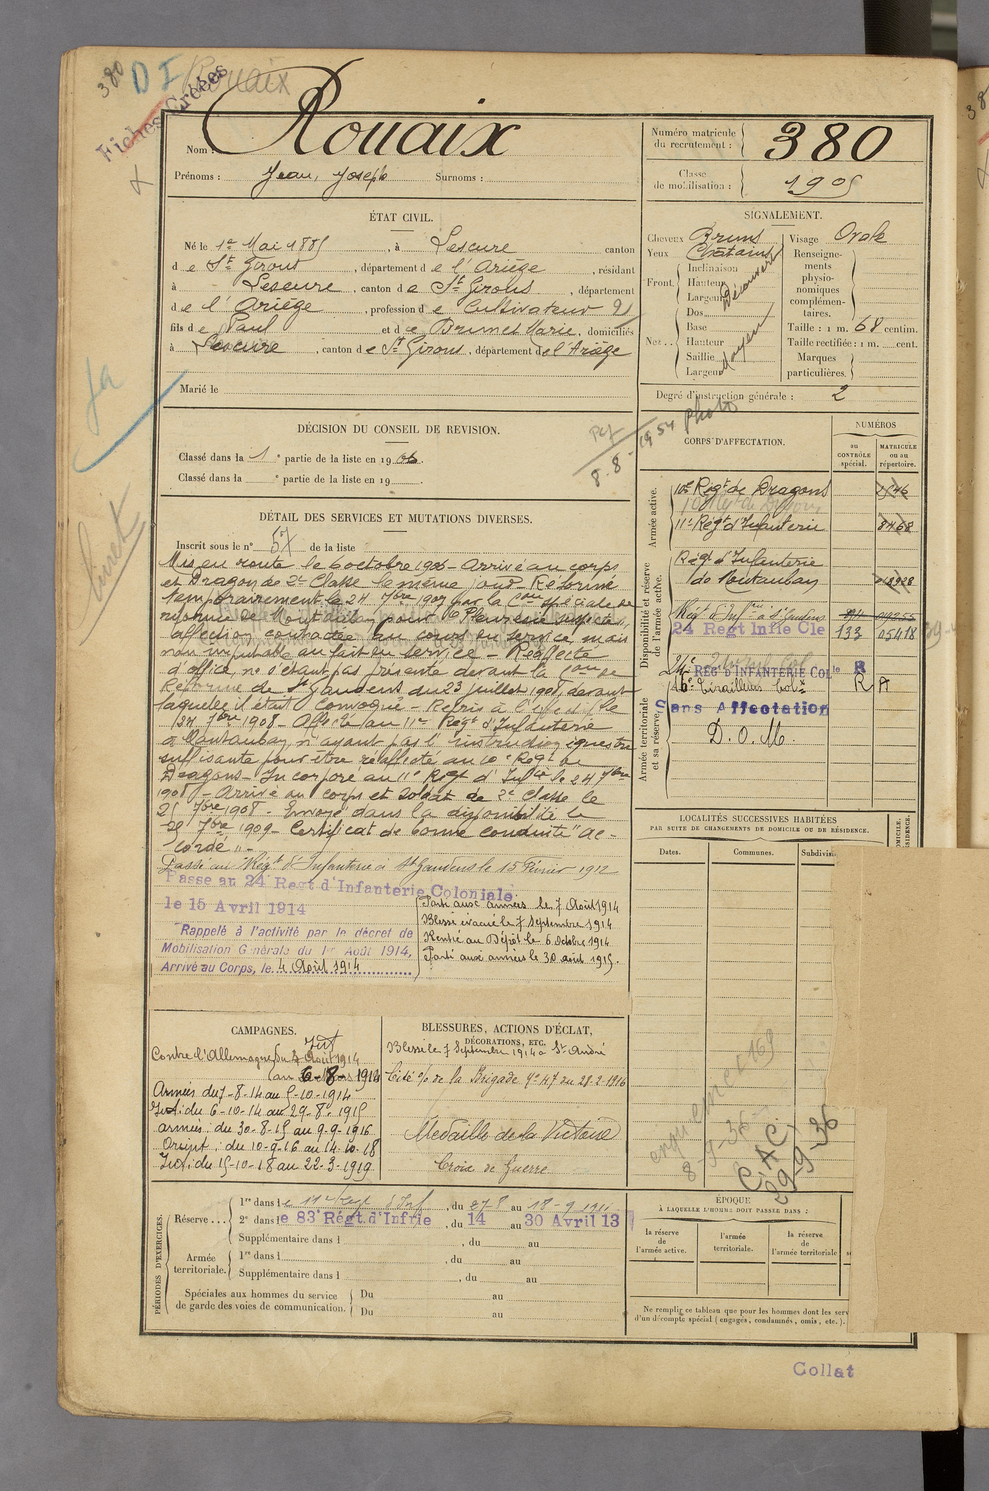 380 D I Rouaix
Fiches Créées
Nom : Rouaix
Prénoms : Jean, Joseph Surnoms :
Numéro matricule du recrutement : 380
Classe de mobilisation : 1905
ÉTAT CIVIL.
Né le 1er Mai 1885, à Lescure canton
de St Girons, département de l'Ariège, résidant
à Lescure, canton de St Girons, département
de l'Ariège, profession de Cultivateur
fils de Paul et de Brunet Marie, domiciliés
à Lescure, canton de St Girons, département de l'Ariège
Marié le
SIGNALEMENT.
Cheveux Bruns
Yeux Châtains
Front. Inclinaison
Hauteur
Largeur
Découvert
Nez Dos
Base
Hauteur
Saillie
Largeur
Moyen
Visage Ovale
Renseignements physionomiques complémentaires.
Taille : 1 m. 68 centim.
Taille rectifiée : 1 m. cent.
Marques particulières.
Degré d'instruction générale : 2
DÉCISION DU CONSEIL DE REVISION.
Classé dans la 1e partie de la liste en 1906.
Classé dans la e partie de la liste en 19
8-8-1954 Photo
DÉTAIL DES SERVICES ET MUTATIONS DIVERSES.
Inscrit sous le n° 57 de la liste
Mis en route le 6 octobre 1906 - Arrivé au corps
et Dragon de 2e Classe le même jour - Réformé
temporairement le 24 7bre 1907 par la Con spéciale de
réforme de Montauban pour
affection contractée au cours du service mais
non imputable au fait du service - Réaffecté
d'office, ne s'étant pas présenté devant la Con de
Réforme de St Gaudens du 23 juillet 1908, devant
laquelle il était convoqué - Repris à l' le
24 7bre 1908 - Affecté au 11e Régt d'Infanterie
à Montauban, n'ayant pas l'instruction équestre
suffisante pour être réaffecté au 10e Régt de
Dragons - Incorporé au 11e Régt d'Infie le 24 7bre
1908 - Arrivé au corps et soldat de 2e classe le
25 7bre 1908 - Envoyé dans la disponibilité le
25 7bre 1909 - Certificat de bonne conduite "Accordé" -
Passé au Régt d'Infanterie à St Gaudens le 15 Février 1912
Passé au 24 Regt d'Infanterie Coloniale
le 15 Avril 1914
Rappelé à l'activité par le décret de
Mobilisation Générale du 1er Août 1914,
Arrivé au Corps, le 4 Août 1914
Parti aux armées le 7 Août 1914
Blessé évacué le 7 Septembre 1914
Rentré au Dépôt le 6 Octobre 1914
Parti aux armées le 30 août 1915.
CORPS D'AFFECTATION.
NUMÉROS
au CONTRÔLE spécial.
MATRICULE ou au répertoire.
Armée active.
10e Régt de Dragons
11e Régt d'Infanterie 8468
Disponibilité et réserve de l'armée active.
Régt d'Infanterie
de Montauban
Régt d'Infie à St Gaudens
24 Regt Infie Cle 133 05418
24e REGT D'INFANTERIE COLle R
16e Tirailleurs Colx R A
Sans Affectation
D. O. M.
Armée territoriale et sa réserve.
LOCALITÉS SUCCESSIVES HABITÉES
PAR SUITE DE CHANGEMENTS DE DOMICILE OU DE RÉSIDENCE.
Dates. Communes.
CAMPAGNES.
Contre l'Allemagne Int du 4 Août 1914
au 6-8-1914
Armées du 7-8-14 au 5-10-1914
Int. du 6-10-14 au 29-8-1915
armées : du 30-8-15 au 9-9-1916
Orient : du 10-9-16 au 14-10-18
Int. du 15-10-18 au 22-3-1919
BLESSURES, ACTIONS D'ÉCLAT,
DÉCORATIONS, ETC.
Blessé le 7 Septembre 1914 à St André
Cité o/o de la Brigade n° 47 du 28-2-1916
Médaille de la Victoire
Croix de Guerre
8-9-36
C.A.C
29-9-36
PÉRIODES D'EXERCICES.
Réserve... 1re dans le 11e Régt d'Inf, du 27-8 au 18-9 1911
2e dans le 83e Régt d'Infrie, du 14 au 30 Avril 13
Supplémentaire dans l , du au
Armée territoriale. 1re dans l , du au
Supplémentaire dans l , du au
Spéciales aux hommes du service de garde des voies de communication. Du au
Du au
ÉPOQUE
À LAQUELLE L'HOMME DOIT PASSER DANS :
la réserve de l'armée active.
l'armée territoriale.
la réserve de l'armée territoriale
Ne remplir ce tableau que pour les hommes dont les serv
d'un décompte spécial (engagés, condamnés, omis, etc.).
Collat